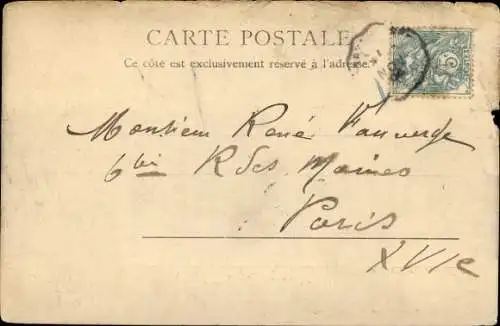 CARTE POSTALE
Ce côté est exclusivement réservé à l'adresse.
5
NOV
Monsieur René Vauverge
6 bis R des Marnes
Paris
XVIe